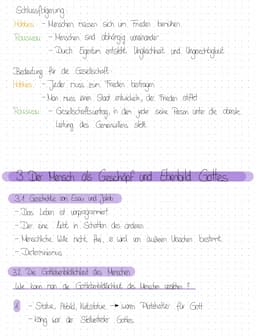 Schlussfolgerung:
Hobbes: - Menschen müssen sich um Frieden bemühen
Rousseau: - Menschen sind abhängig voneinander
- Durch Eigentum entsteht Ungleichheit und Ungerechtigkeit
Bedeutung für die Gesellschaft:
Hobbes: - Jeder muss zum Frieden beitragen
- Man muss einen Staat entwickeln, der Frieden stiftet
Rousseau: - Gesellschaftsvertrag, in dem jeder seine Person unter die oberste
Leitung des Gemeinwillens stellt
3. Der Mensch als Geschöpf und Ebenbild Gottes
3.1 Geschichte von Esau und Jakob
- Das Leben ist vorprogrammiert
- Der eine lebt im Schatten des anderen
- Menschliche Wille nicht frei, er wird von äußeren Ursachen bestimmt
- Determinismus
3.2 Die Gottebenbildlichkeit des Menschen
Wie kann man die Gottebenbildlichkeit des Menschen verstehen?
- Statue, Abbild, Kultstatue → waren Platzhalter für Gott
- König war der Stellvertreter Gottes